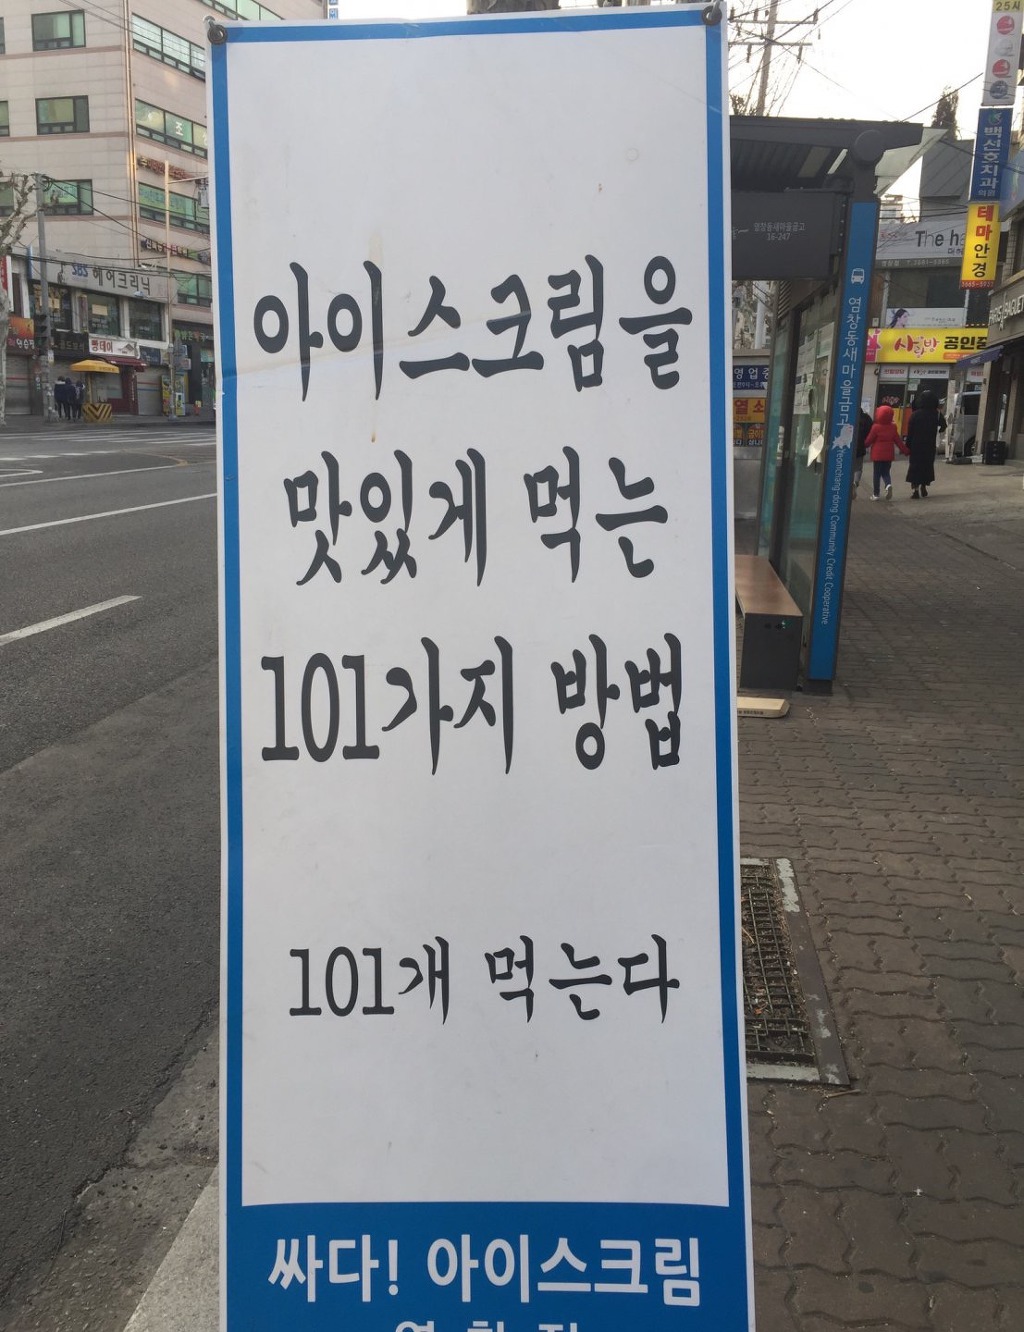 아이스크림을
맛있게 먹는
101가지 방법
101개 먹는다
싸다! 아이스크림
SBS 헤어크리닉
빵데이
염창동새마을금고
16-247
염창동새마을금고
Yeomchang-dong Community Credit Cooperative
25시
백선호치과
테마안경
3665-5937
The h
공인중
영업중